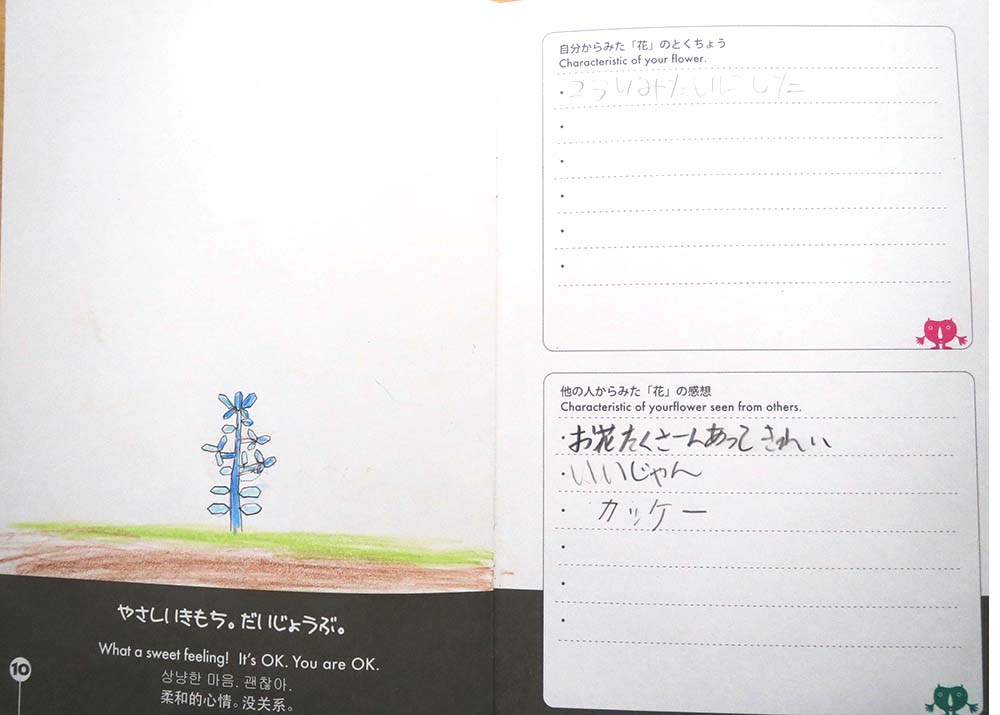 自分からみた「花」のとくちょう
Characteristic of your flower.
みたいにした
他の人からみた「花」の感想
Characteristic of yourflower seen from others.
・お花たくさーんあってきれい
・いいじゃん
・カッケー
やさしいきもち。だいじょうぶ。
What a sweet feeling! It's OK. You are OK.
상냥한 마음. 괜찮아.
柔和的心情。没关系。
10